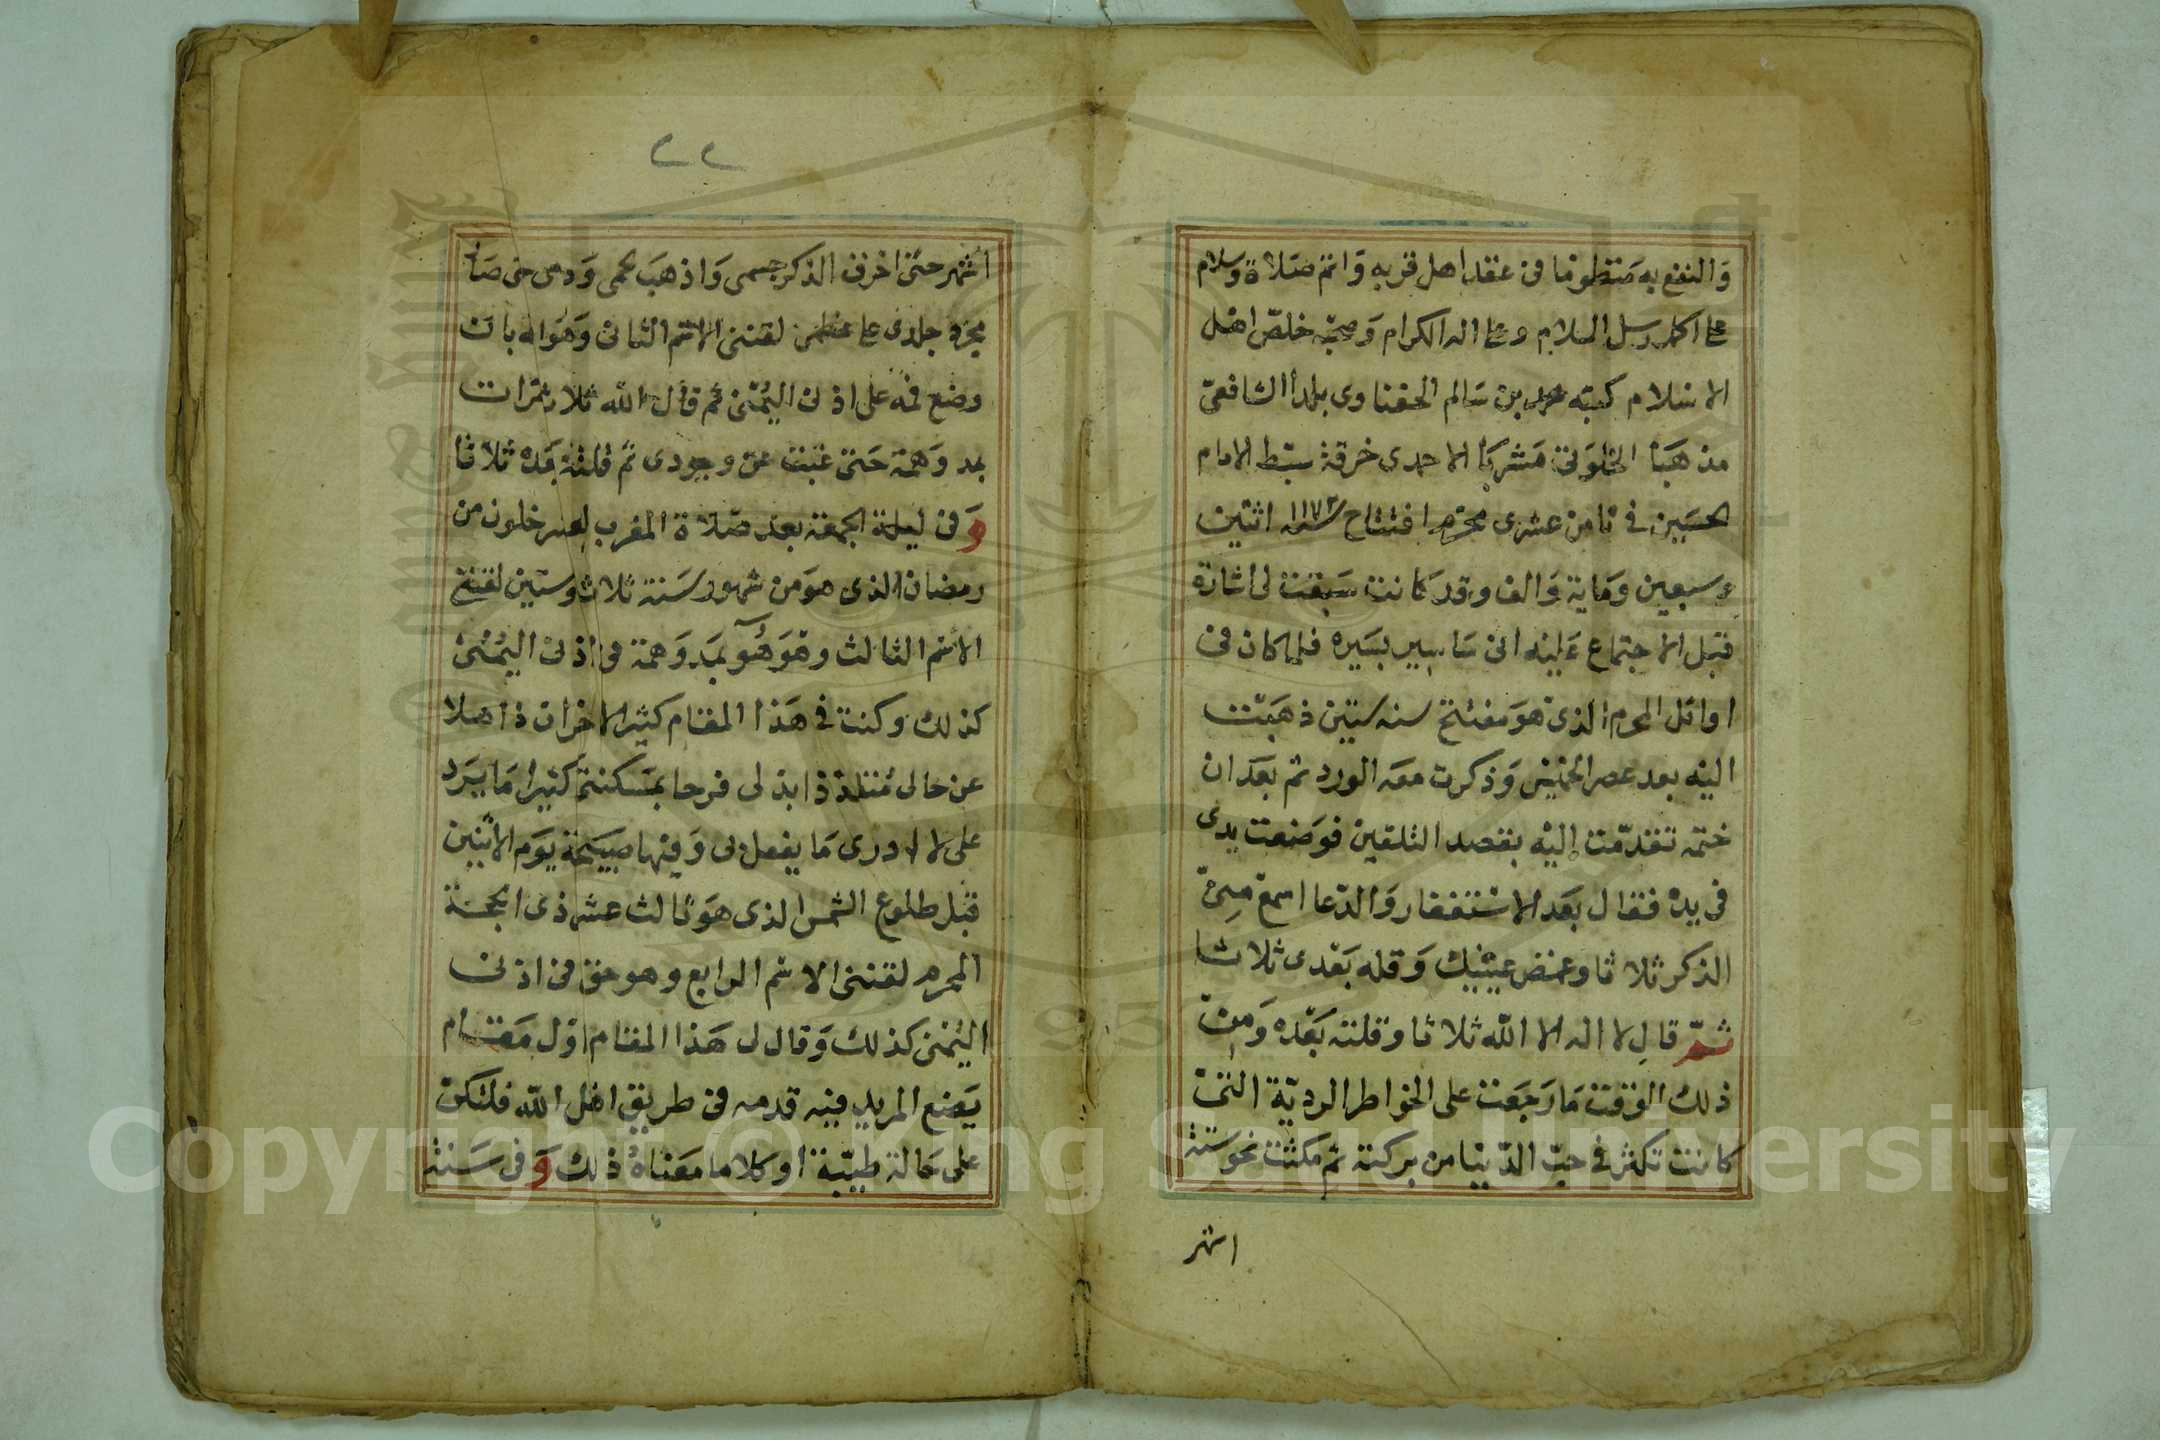 والنفع به منظوما في عقد اهل قربه واتم صلاة وسلام
على اكمل رسل السلام وعلى اله الكرام وصحبه خلص اهل
الاسلام كتبه محمد بن سالم الحفناوى بلدا الشافعى
مذهبا الخلوتى مشربا الاحمدى خرقة سبط الامام
الحسين في ثامن عشرى محرم افتتاح سنة ١١٧٢ اثنتين
وسبعين وماية والف وقد كانت سبقت لى اشارة
قبل الاجتماع عليه انى ساسير بسيره فلما كان في
اوائل المحرم الذى هو مفتتح سنه ستين ذهبت
اليه بعد عصر الخميس وذكرت معه الورد ثم بعد ان
ختمه تقدمت اليه بقصد التلقين فوضعت يدى
في يده فقال بعد الاستغفار والدعا اسمع منى
الذكر ثلاثا وغمض عينيك وقله بعدى ثلاثا
ثم قال لا اله الا الله ثلاثا وقلته بعده ومن
ذلك الوقت ما رجعت على الخواطر الردية التى
كانت تكثر في حب الدنيا من بركته ثم مكثت نحو ستة
اشهر
٢٢
اشهر حتى احرق الذكر جسمى واذهب لحمى ودمى حتى صار
مجرد جلدى على عظمى لقننى الاسم الثانى وهو الله بان
وضع فمه على اذنى اليمنى ثم قال الله ثلاث مرات
بمد وهمة حتى غبت عن وجودى ثم قلته بعده ثلاثا
وفي ليلة الجمعة بعد صلاة المغرب لعشر خلون من
رمضان الذى هو من شهور سنة ثلاث وستين لقننى
الاسم الثالث وهو هو بمد وهمة في اذنى اليمنى
كذلك وكنت في هذا المقام كثير الاحزان ذاهلا
عن حالى متلذذا بذلى فرحا بمسكنتى كثيرا ما يرد
على لا ادرى ما يفعل بى وفيها صبيحة يوم الاثنين
قبل طلوع الشمس الذى هو ثالث عشر ذى الحجة
المحرم لقننى الاسم الرابع وهو حق في اذنى
اليمنى كذلك وقال لى هذا المقام اول مقام
يضع المريد فيه قدمه في طريق اهل الله فلتكن
على حالة طيبة او كلاما معناه ذلك وفى سنة
Copyright © King Saud University